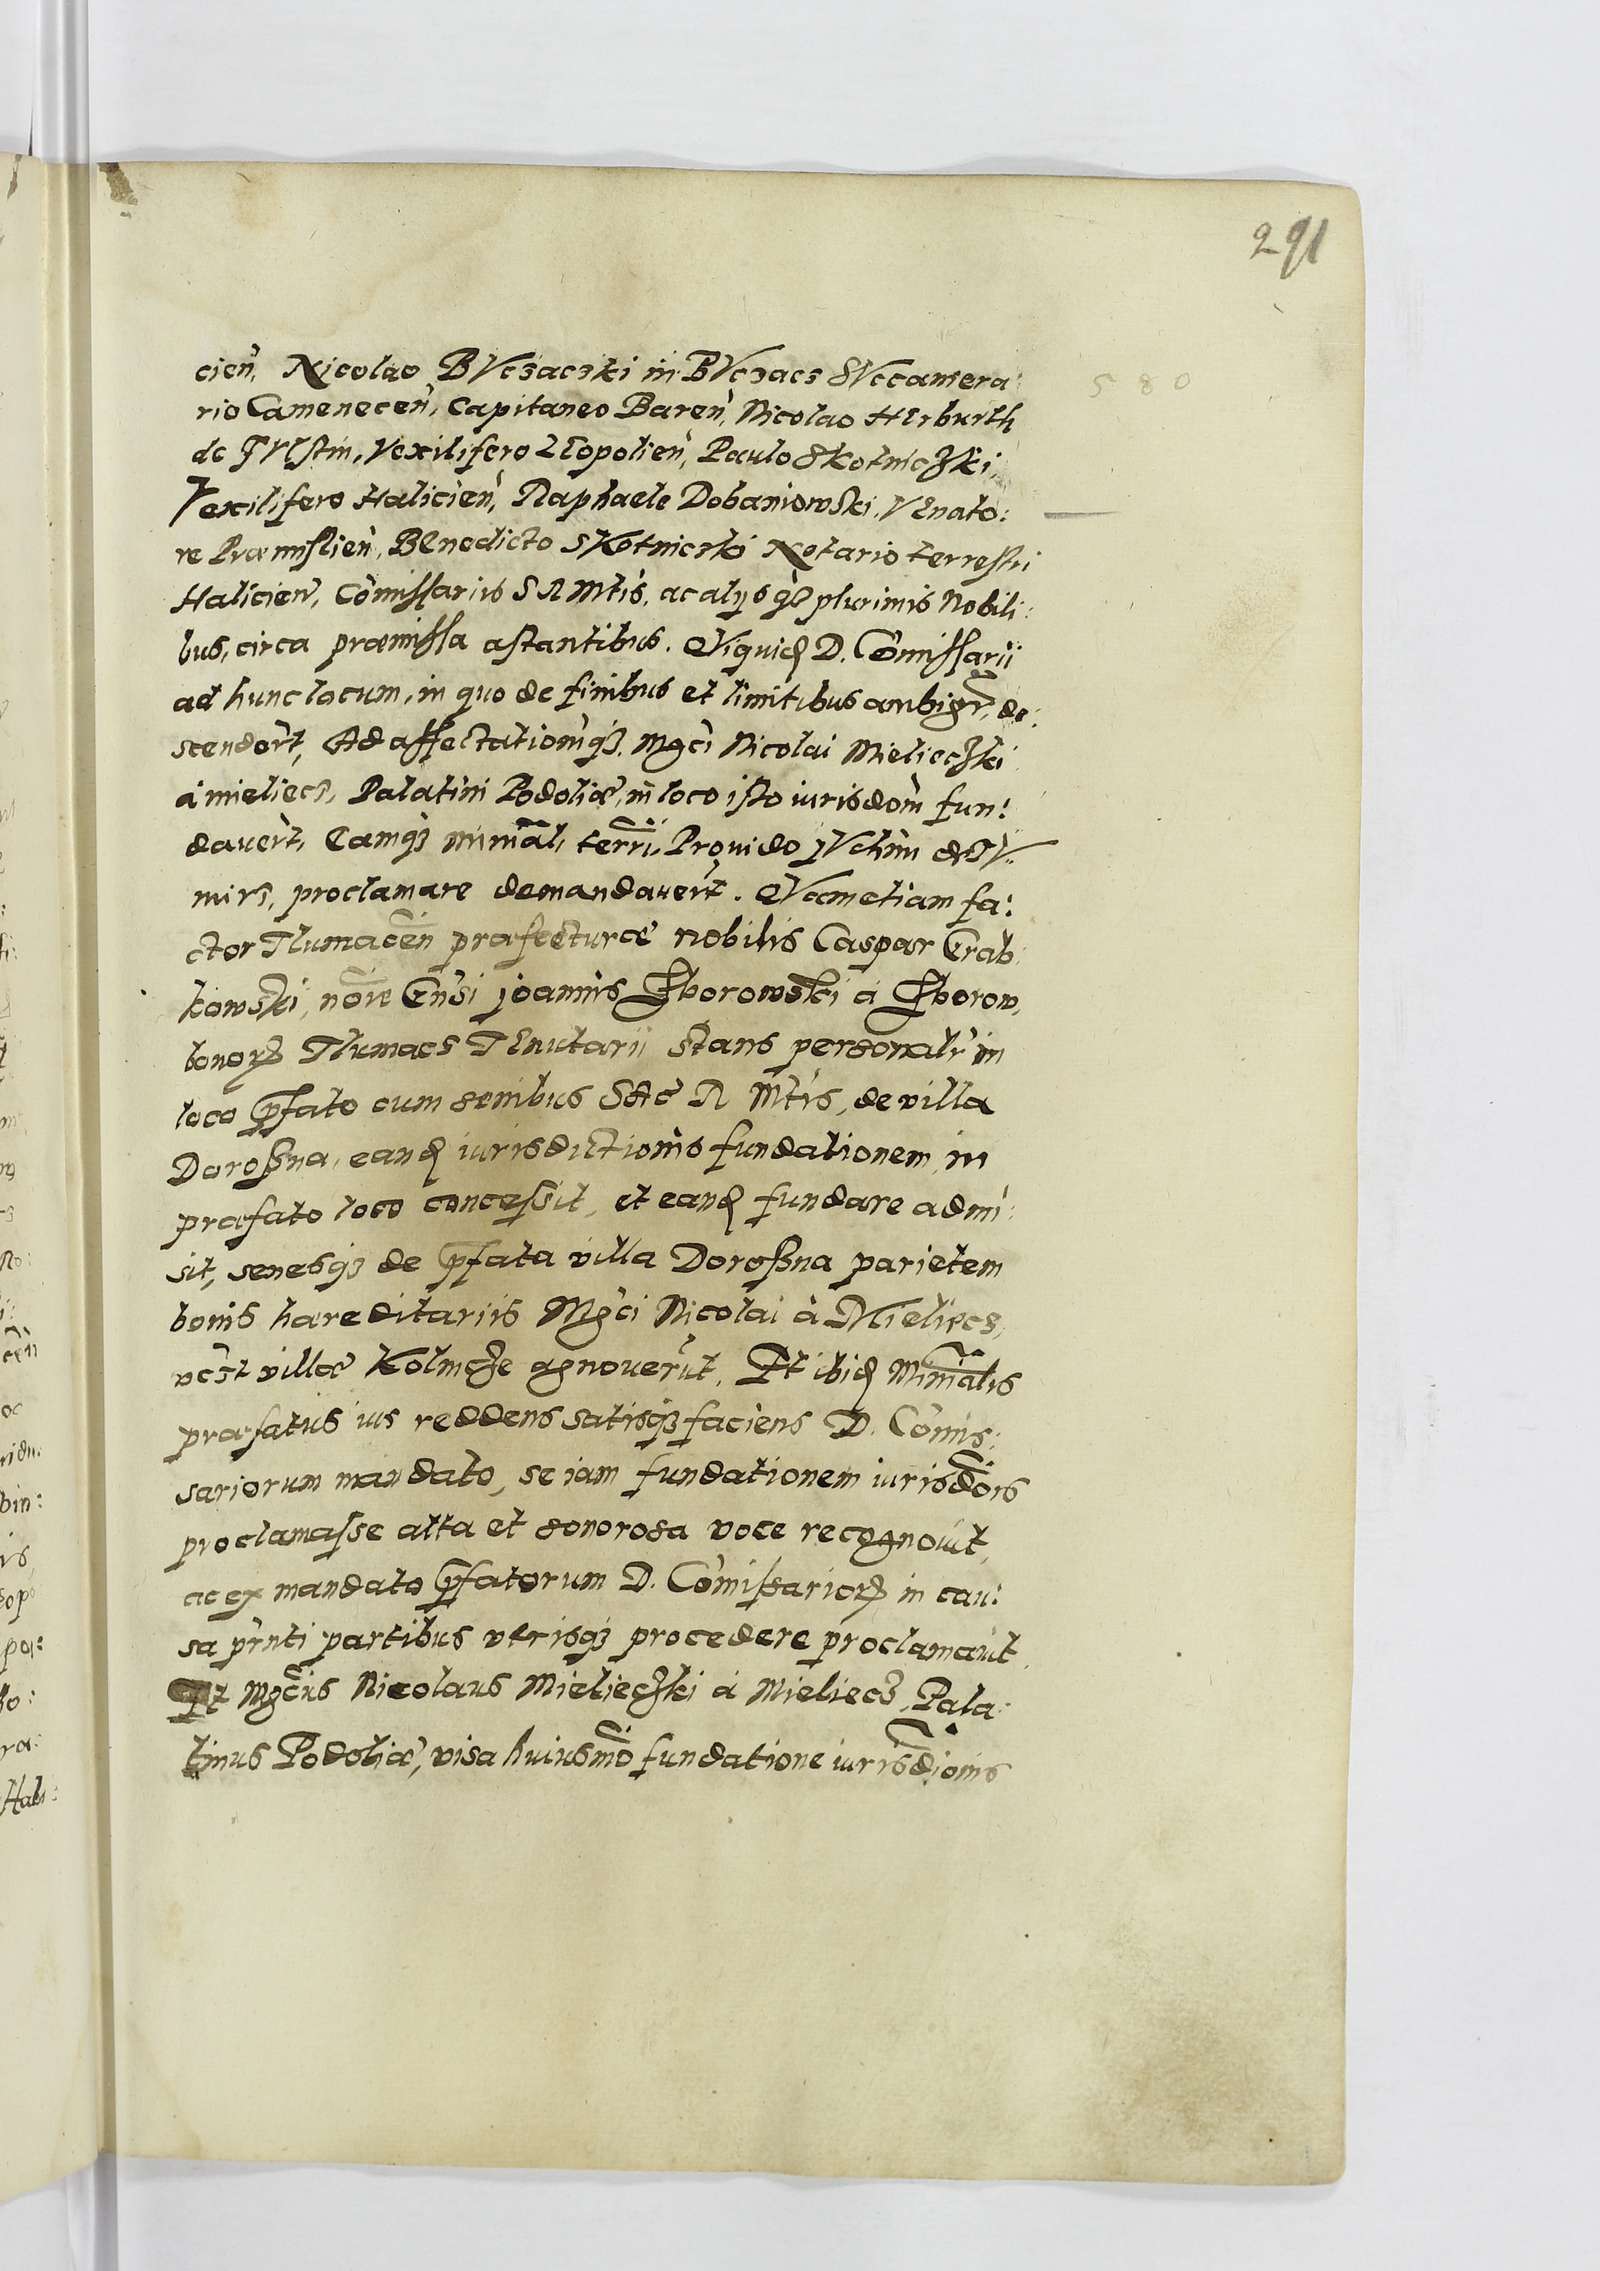 291
580
cien̄, Nicolao BVczaczki in BVczacs SVccamera:
rio Camenecen̄, Capitaneo Baren̄, Nicolao HErburth
de FVlstin, Vexilifero LEopolien̄, Paulo Skotniczki,
Vexilifero Halicien̄, Raphaele Dobaniowski, VEnato:
re Præmislien̄, BEnedicto SKotnicski Notario terrestri
Halicien̄, Cōmissariis S R Mtis, ac alÿsq3 plurimis Nobili:
bus, circa præmissa astantibus. QViquid D. Cōmissarii
ad hunc locum, in quo de finibus et limitibus ambigr̄, de:
scendert̄, Ad affectationēq3 Mgci Nicolai Mielieczki
á mieliecz, Palatini Podoliæ, in loco isto iurisdom̄ fun:
davert̄, Eamq3 minīāl, terrī, Provido
mirs, proclamare demandavert̄. QVem etiam fa:
ctor Tlumacēn præfecturæ nobilis Caspar Grab:
kowski, nōīe Gn̄si joannis Zborowski á Zborow,
bonor̄ Tlumacs TEnutarii Stans personalr̄ in
loco p̄fato cum senibus SAc̄ R Mtis, de villa
Doroßna, eand iurisdictionis fundationem in
præfato loco concessit, et eand fundare admi:
sit, senesq3 de p̄fata villa Doroßna parietem
bonis hæreditariis Mgci Nicolai à Mieliecz,
vest villæ Kolincze agnoverūt. Et ibid Minīālis
præfatus ius reddens satisq3 faciens D. Cōmis:
sariorum mandato, se iam fundationem iurisdoīs
proclamasse alta et sonorosa voce recognovit,
ac ex mandato p̄fatorum D. Cōmissarior̄ in cau:
sa pn̄ti partibus vtrisq3 procedere proclamāvit.
Et Mgcūs Nicolaus Mielieczki á Mieliecz, Pala:
tinus Podoliæ, visa huiusmō fundatione iurisd̄ionis